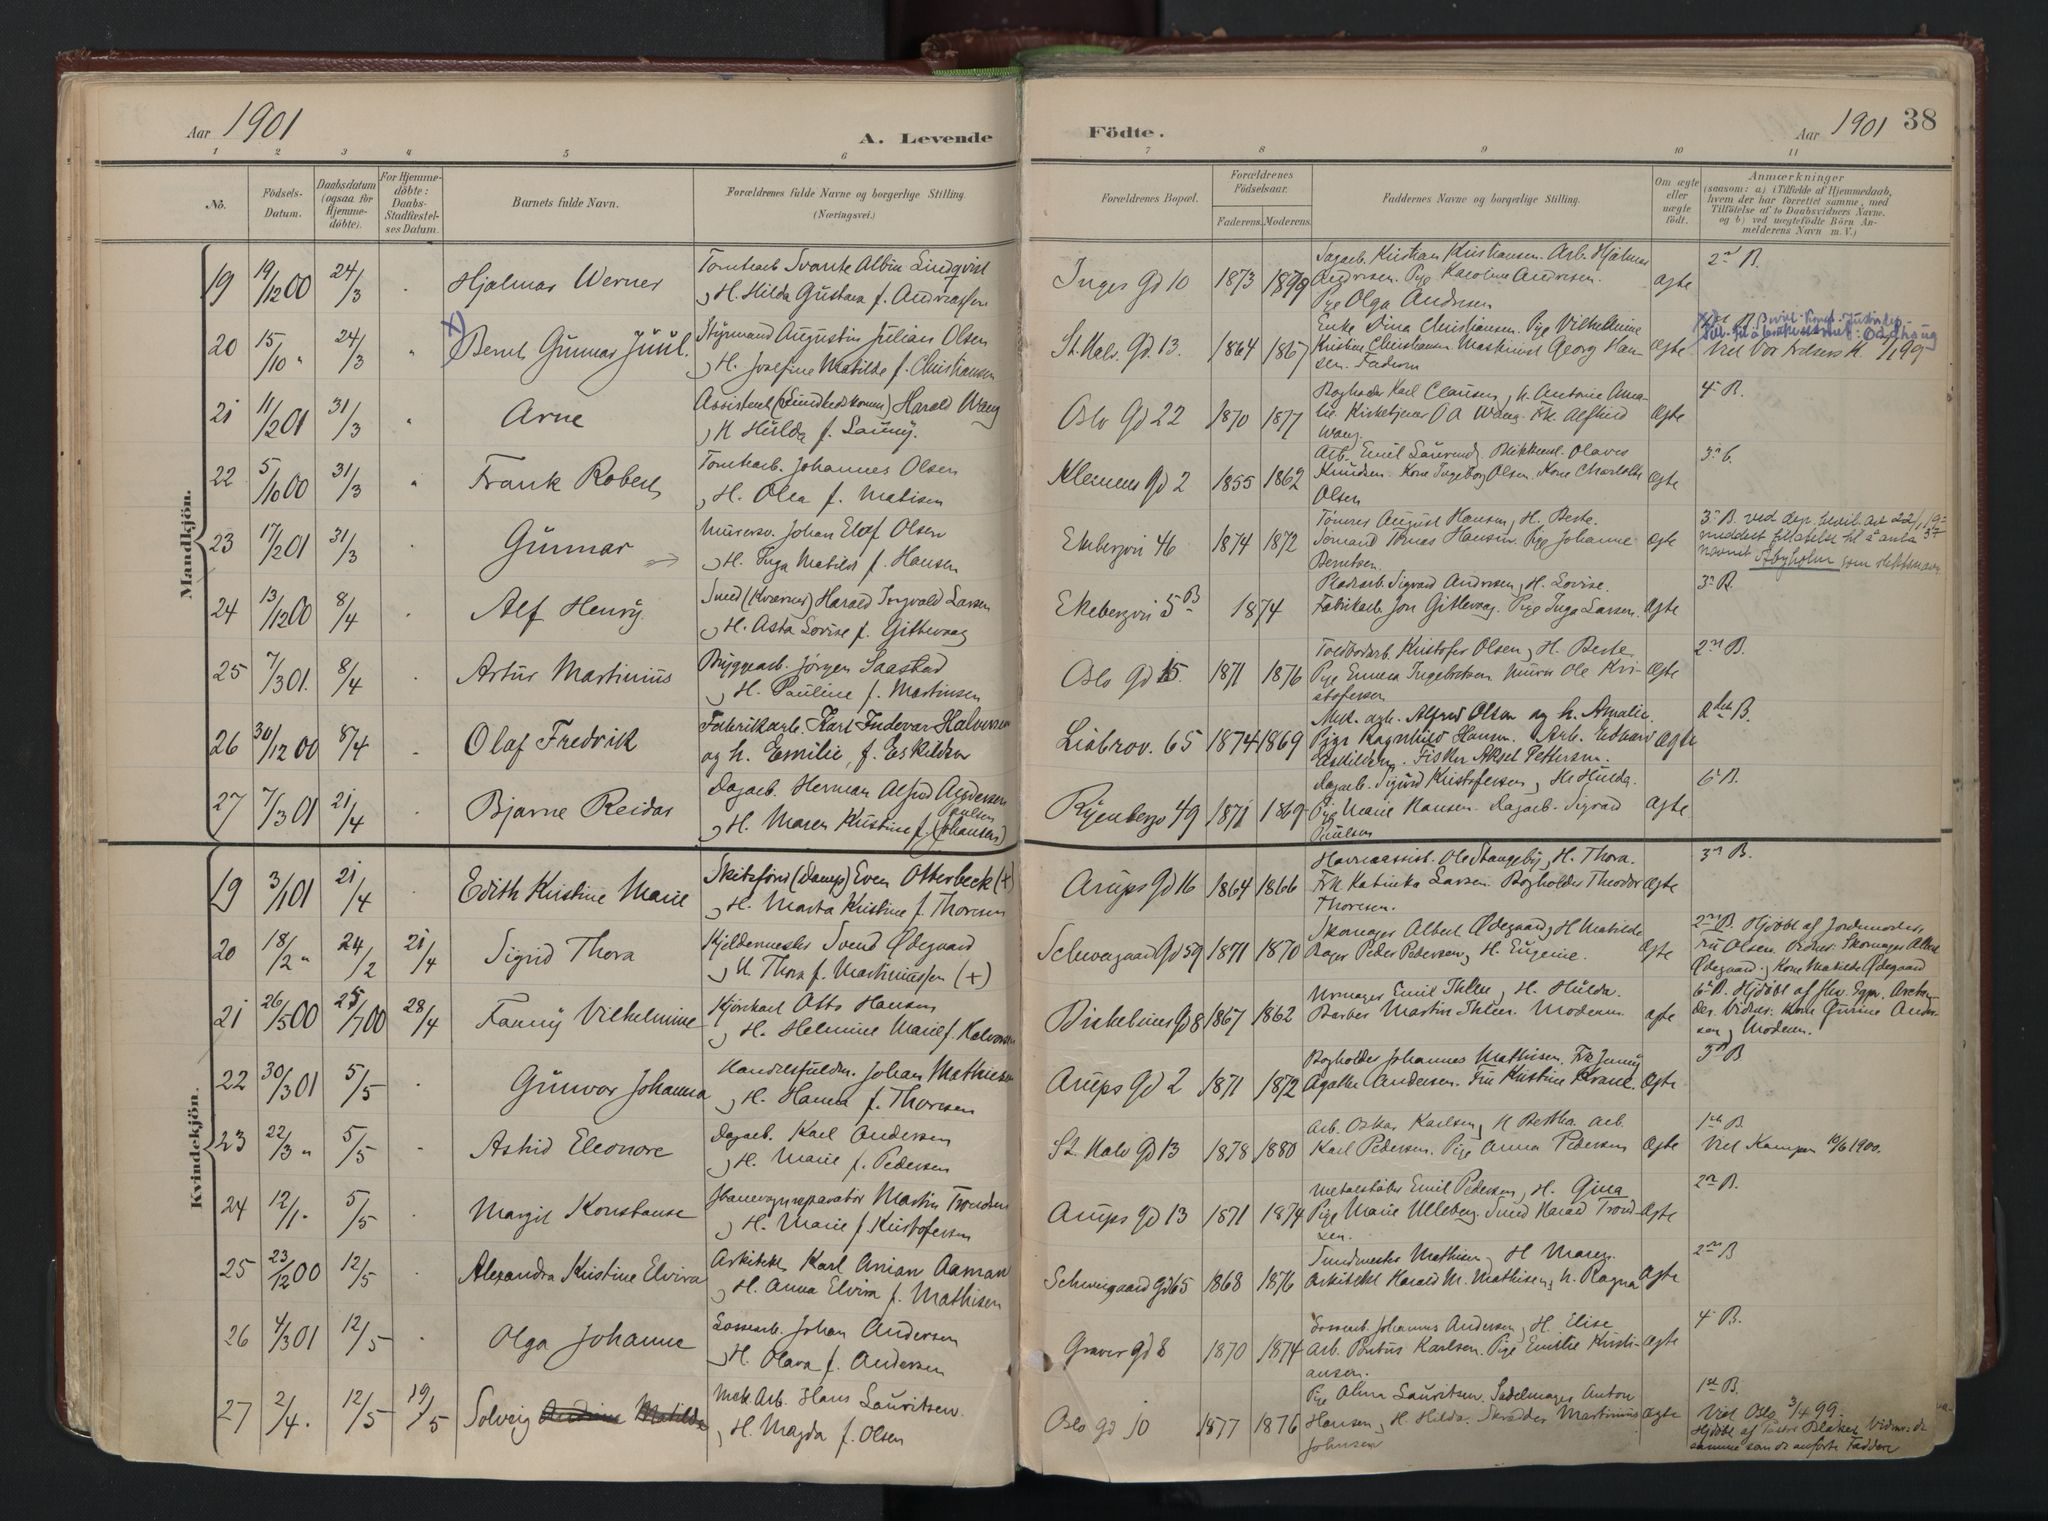 Aar 1901
A. Levende
Födte.
Aar 1901
38
1 2 3 4 5 6 7 8 9 10 11
No.
Födsels-
Datum.
Daabsdatum
(ogsaa for
Hjemme-
döbte).
For Hjemme-
döbte:
Daabs-
Stadfæstel-
ses Datum.
Barnets fulde Navn.
Forældrenes fulde Navne og borgerlige Stilling.
(Næringsvei.)
Forældrenes Bopæl.
Forældrenes
Födselsaar.
Faderens. Moderens.
Faddernes Navne og borgerlige Stilling.
Om ægte
eller
uægte
födt.
Anmærkninger
(saasom: a) i Tilfælde af Hjemmedaab,
hvem der har forrettet samme, med
Tilföielse af to Daabsvidners Navne.
og b) ved uægtefödte Börn An-
melderens Navn m. V.)
Mandkjön.
19 19/12 00 24/3 Hjalmar Werner
Tomtearb Svante Albin Lindqvist
H. Hilda Gustava f.
Inges Gd 10 1873
Sagarb. Kristian Kristiansen. Arb. Hjalmar
Andresen. Pige Karoline Andresen.
Pige Olga Andresen
ægte
2n B.
20 15/10 " 24/3 Bernt Gunnar Juul.
Styrmand Augustin Julian Olsen
H. Josefine Matilde f. Christiansen
St. Halv. Gd. 13. 1864 1867
Enke Dina Christiansen. Pige Vilhelmine
Kristine Christiansen. Maskinist Georg Han-
sen. Faderen
ægte
Viet Vor Frelsers K.
21 11/2 01 31/3 Arne
Assistent Harald Wang
H Hulda f. Launy.
Oslo Gd 22 1870 1877
Bogholder Karl Clausen, h. Antonie Ama-
lie. Kirketjener O A Wang. Frk Alfhild
Wang.
ægte
4 B.
22 5/10 00 31/3 Frank Robert
Tomtearb. Johannes Olsen
H. Olea f. Matisen
Klemens Gd 2 1855 1862
Arb. Emil Laurend, Blikkensl. Olaves
Knudsen. Kone Ingeborg Olsen. Kone Charlotte
Olsen
ægte
23 17/2 01 31/3 Gunnar
Murersv. Johan Elof Olsen
H. Inga Matilde f. Hansen
Ekebergvn 46 1874 1872
Tömres August Hansen, H. Berte.
Sömand Tomas Hansen. Pige Johanne
Berntsen.
ægte
3 B. ved dep. bevil. av 22/1 19
meddelt tillatelse til å anta
navnet som slektsnavn
24 13/12 00 8/4 Alf Henry.
Smed (Kværner) Harald Ingvald Larsen
H. Asta Lovise f. Gittevaag
Ekebergvn 5 B 1874
Pladsarb. Sigvard Andersen, H. Lovise.
Fabrikarb. Jon Gittevaag. Pige Inga Larsen.
ægte
3 B.
25 7/3 01. 8/4 Artur Martinius
Bryggearb. Jörgen Saastad
H. Pauline f. Martinsen
Oslo Gd 15. 1871 1876
Toldbodarb. Kristofer Olsen, H. Berte.
Pige Emma Ingebretsen. Murer Ole Kri-
stofersen
ægte
2n B.
26 30/12 00 8/4 Olaf Fredrik
Fabrikarb. Karl Indevar Halvorsen
og h. Emilie, f. Eskildsen
Liabrov. 65 1874 1869
Mek. arb. Alfred Olsen og h. Amalie.
Pige Ragnhild Hansen. Arb. Edvard
Eskildsen. Fisker Aksel Pettersen.
ægte
2den B.
27 7/3 01 21/4 Bjarne Reidar
Dagarb. Herman Alfred Andersen
H. Maren Kristine f. Paulsen (Johansen)
Ryenbergv 49 1871 1869
Dagarb. Sigurd Kristofersen, H. Hulda.
Pige Marie Hansen. Dagarb. Sigvard
Paulsen
ægte
6 B.
Kvindekjön.
19 3/1 01 21/4 Edith Kristine Marie
Skibsförer (Damp) Even Otterbeck (+)
H. Marta Kristine f. Thoresen
Arups Gd 16 1864 1866
Havneassist. Ole Stangeby, H. Thora.
Frk Katinka Larsen. Bogholder Theodor
Thoresen.
ægte
3n B.
20 18/2 " 24/2 21/4 Sigrid Thora
Kjeldermester Svend Ødegaard
H. Thora f. Martiniussen (+)
Schweigaard Gd 59 1871 1870
Skomager Albert Ødegaard, H Matilde
Bager Peder Pedersen, H. Eugenie.
ægte
2n B. Hjdöbt af Jordemoder
Fru Olsen. Vidner: Skomager Albert
Ødegaard, Kone Matilde Ødegaard
21 26/5 00 25/7 00 28/4 Fanny Vilhelmine
Kjörekarl Otto Hansen
H. Helmine Marie f. Halvorsen
Birkebeiner Gd 8 1867 1862
Urmager Emil Thlee, H. Hulda.
Barber Martin Thleer. Moderen.
ægte
6 B. Hjdöbt af
Vidner: Kone Gurine Ander-
sen, Moderen.
22 30/3 01 5/5 Gunvor Johanna
Handelsfuldm. Johan Mathiesen
H. Hanna f. Thoresen
Arups Gd 2 1871 1872
Bogholder Johannes Mathisen. Frk Jenny
Agathe Andersen. Fru Kristine Krane.
ægte
3n B
23 22/3 " 5/5 Astrid Eleonore
Dagarb. Karl Andersen
H. Marie f. Pedersen
St. Halv Gd 13 1878 1880
Arb. Oskar Karlsen, H Bertha. Arb.
Karl Pedersen. Pige Anna Pedersen
ægte
1ste B.
Viet Kampen 10/6 1900.
24 12/1. 5/5 Margit Konstanse
Jbanevognreparatör Martin Trondsen
H. Marie f. Kristofersen
Arups Gd 13 1871 1874
Metalstöber Emil Pedersen, H. Gina
Pige Marie Ulleberg. Smed Harald Trond
sen.
ægte
2n B.
25 23/12 00 12/5 Alexandra Kristine Elvira
Arkitekt Karl Anian Aaman
H. Anna Elvira f. Mathisen
Schweigaard Gd 65 1868 1876
Smedmester Mathisen, H Maren.
Arkitekt Harald M. Mathisen, h. Ragna
ægte
2n B
26 4/3 01 12/5 Olga Johanne
Lossearb. Johan Andersen
H. Olava f. Andersen
Graver Gd 8 1870 1874
Lossearb. Johannes Andersen, H. Elise
Arb. Karlsen. Pige Emilie Kristi-
ansen.
ægte
4 B.
27 2/4. 12/5 19/5 Solveig Matilde
Mek. Arb. Hans Lauritsen.
H. Magda f. Olsen
Oslo gd 10 1877 1876
Pige Alma Lauritsen. Sadelmager Anton
Hansen, H. Hilda. Skrædder Martinius
Johnsen
ægte
1st B.
Viet Oslo 3/4 99.
Hjdöbt af Pastor Blaker. Vidner: de
samme som de anförte Faddere